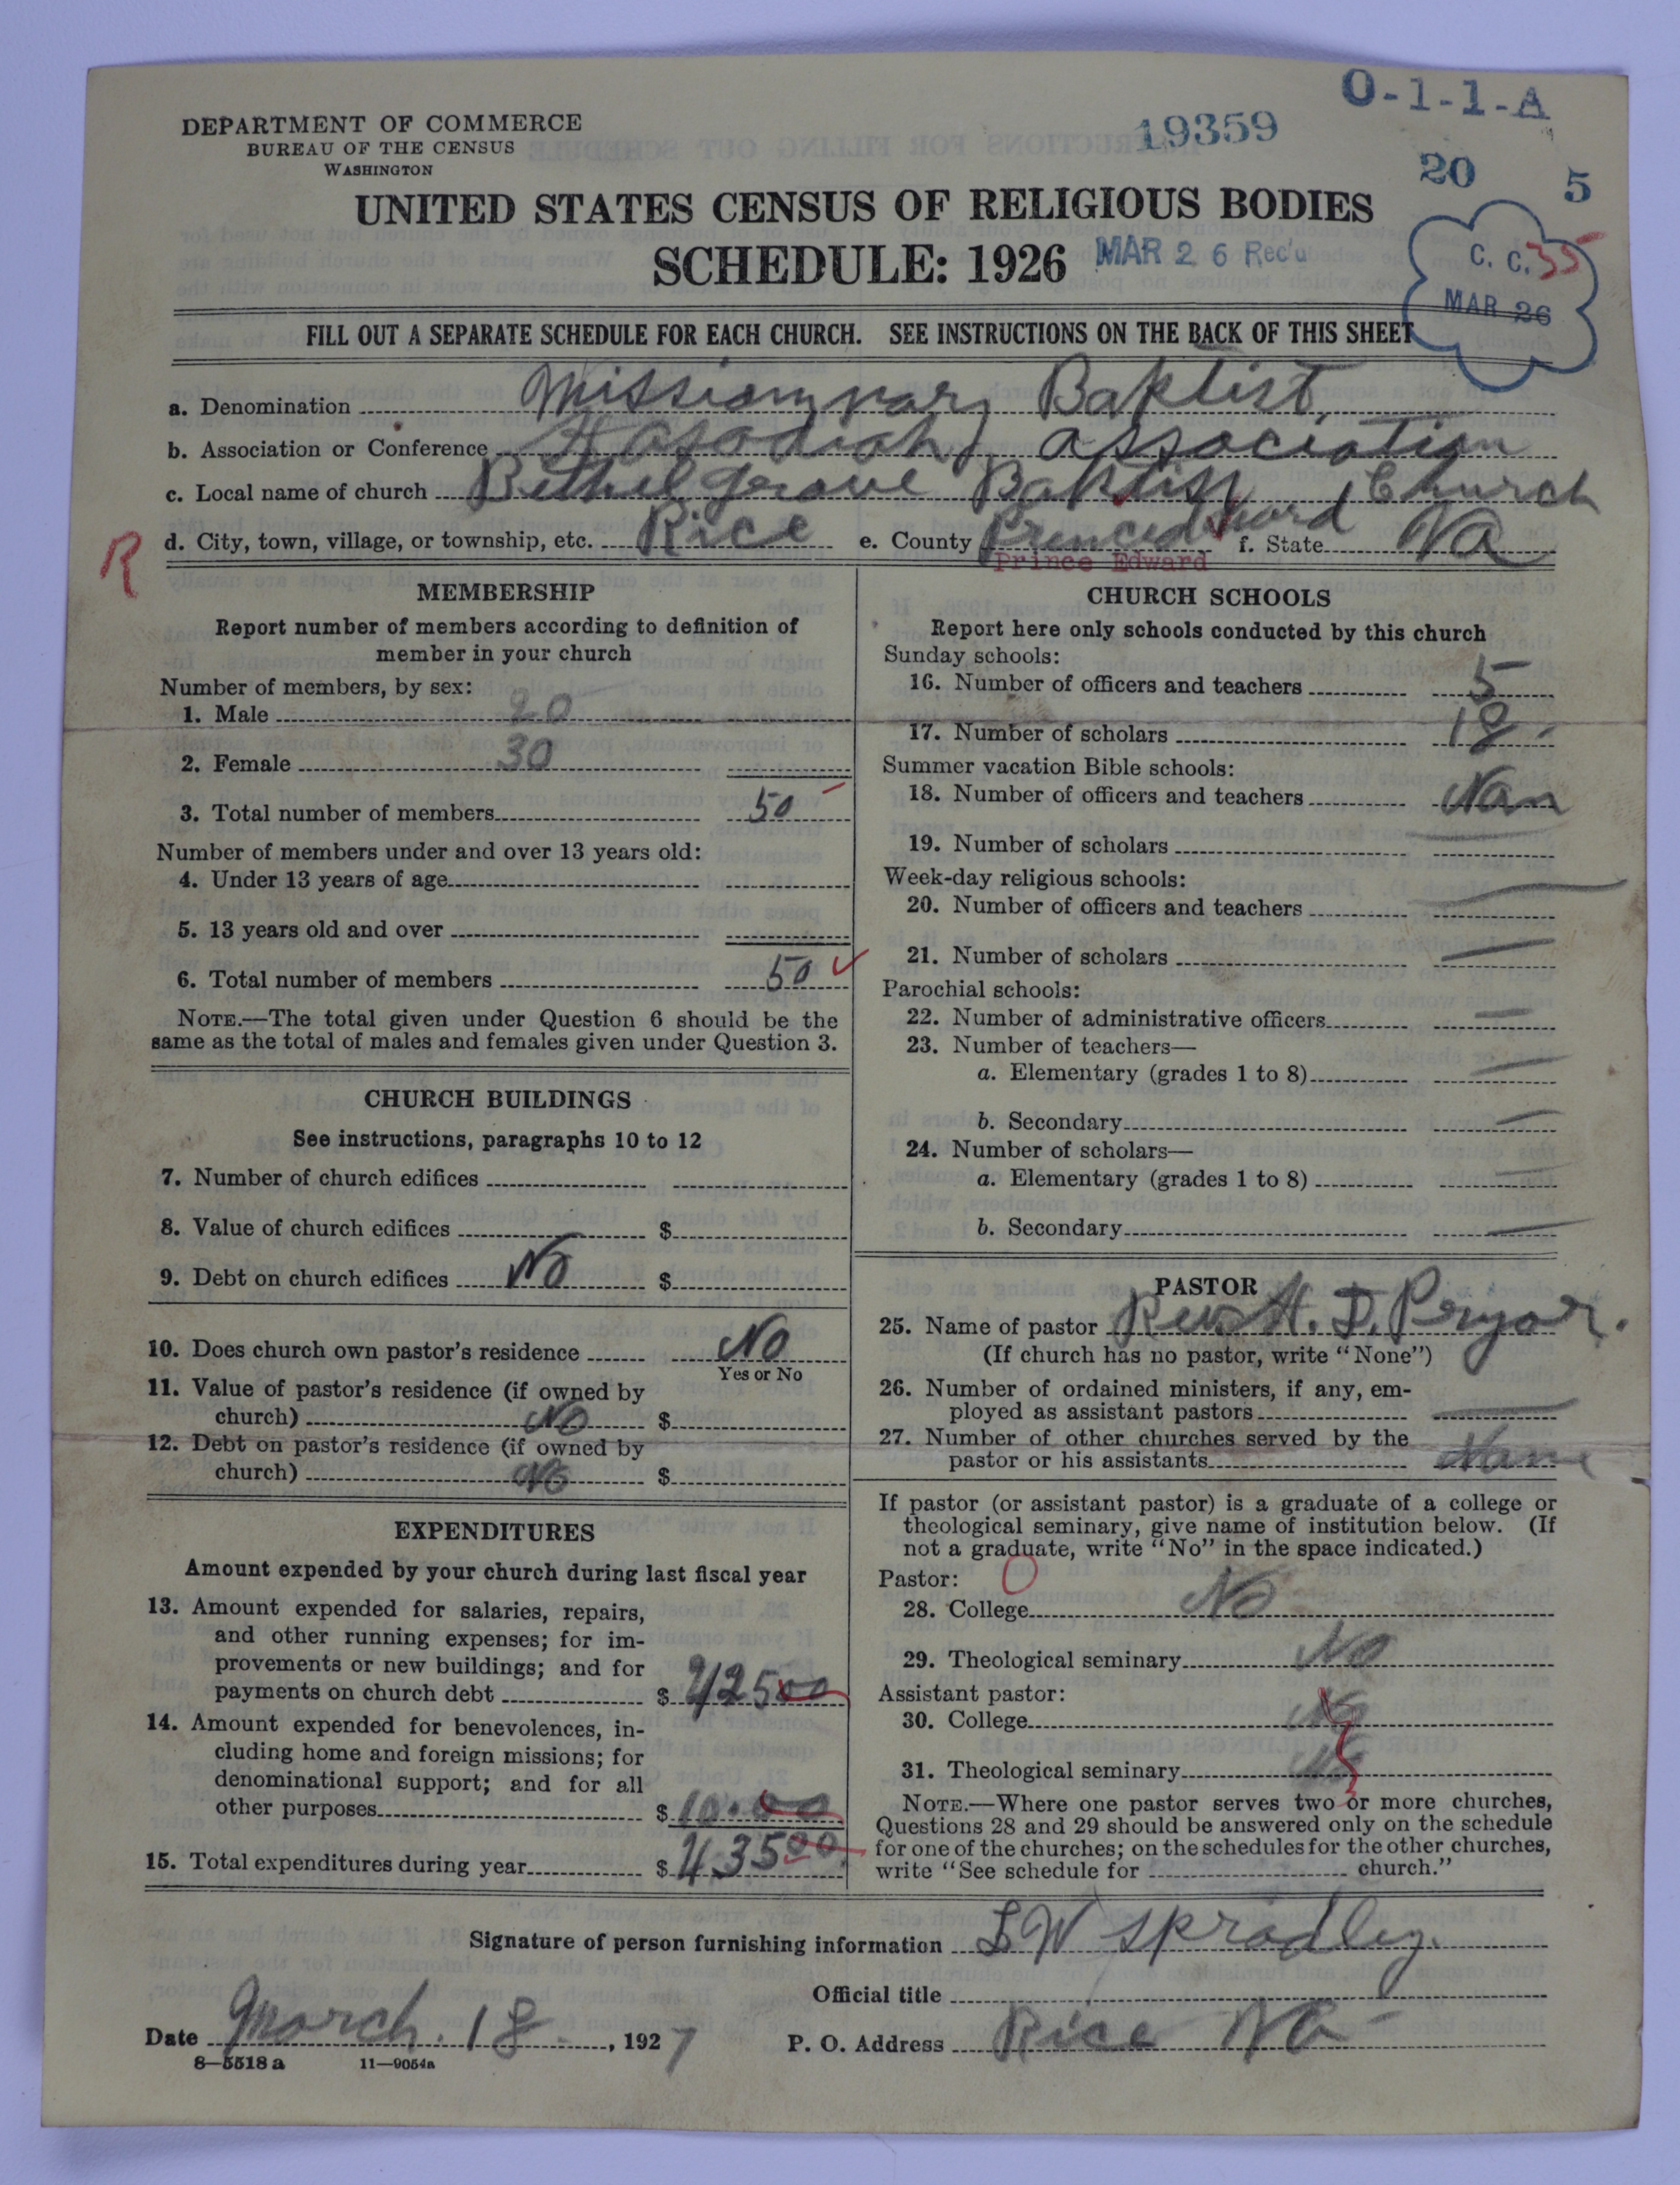 O-1-1-A
DEPARTMENT OF COMMERCE
BUREAU OF THE CENSUS
WASHINGTON
19359
20 5
UNITED STATES CENSUS OF RELIGIOUS BODIES
SCHEDULE: 1926
MAR 26 Rec'd
C. C. 35
MAR 26
FILL OUT A SEPARATE SCHEDULE FOR EACH CHURCH. SEE INSTRUCTIONS ON THE BACK OF THIS SHEET
a. Denomination Missionary Baptist
b. Association or Conference Hasadiah association
c. Local name of church Bethel grove Baptist Church
R d. City, town, village, or township, etc. Rice e. County Princedward f. State Va
Prince Edward
MEMBERSHIP
Report number of members according to definition of
member in your church
Number of members, by sex:
1. Male 20
2. Female 30
3. Total number of members 50
Number of members under and over 13 years old:
4. Under 13 years of age
5. 13 years old and over
6. Total number of members 50
NOTE.—The total given under Question 6 should be the
same as the total of males and females given under Question 3.
CHURCH BUILDINGS
See instructions, paragraphs 10 to 12
7. Number of church edifices
8. Value of church edifices $
9. Debt on church edifices No $
10. Does church own pastor's residence No
Yes or No
11. Value of pastor's residence (if owned by
church) No $
12. Debt on pastor's residence (if owned by
church) No $
EXPENDITURES
Amount expended by your church during last fiscal year
13. Amount expended for salaries, repairs,
and other running expenses; for im-
provements or new buildings; and for
payments on church debt $ 42500
14. Amount expended for benevolences, in-
cluding home and foreign missions; for
denominational support; and for all
other purposes $ 10.00
15. Total expenditures during year $ 43500
CHURCH SCHOOLS
Report here only schools conducted by this church
Sunday schools:
16. Number of officers and teachers 5
17. Number of scholars 18
Summer vacation Bible schools:
18. Number of officers and teachers Nan
19. Number of scholars
Week-day religious schools:
20. Number of officers and teachers
21. Number of scholars
Parochial schools:
22. Number of administrative officers
23. Number of teachers—
a. Elementary (grades 1 to 8)
b. Secondary
24. Number of scholars—
a. Elementary (grades 1 to 8)
b. Secondary
PASTOR
25. Name of pastor Rev. H. D. Pryor.
(If church has no pastor, write "None")
26. Number of ordained ministers, if any, em-
ployed as assistant pastors
27. Number of other churches served by the
pastor or his assistants Nane
If pastor (or assistant pastor) is a graduate of a college or
theological seminary, give name of institution below. (If
not a graduate, write "No" in the space indicated.)
Pastor: O
28. College No
29. Theological seminary No
Assistant pastor:
30. College No
31. Theological seminary No
NOTE.—Where one pastor serves two or more churches,
Questions 28 and 29 should be answered only on the schedule
for one of the churches; on the schedules for the other churches,
write "See schedule for church."
Signature of person furnishing information S W Spradley.
Official title
Date March. 18, 1927 P. O. Address Rice Va
8—5518 a 11—9054a